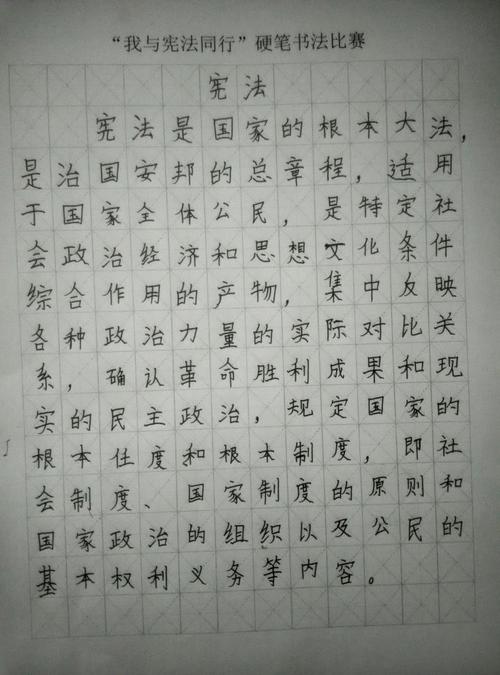 “我与宪法同行”硬笔书法比赛
宪法
宪法是国家的根本大法，
是治国安邦的总章程，适用
于国家全体公民，是特定社
会政治经济和思想文化条件
综合作用的产物，集中反映
各种政治力量的实际对比关
系，确认革命胜利成果和现
实的民主政治，规定国家的
根本任度和根本制度，即社
会制度、国家制度的原则和
国家政治的组织以及公民的
基本权利义务等内容。